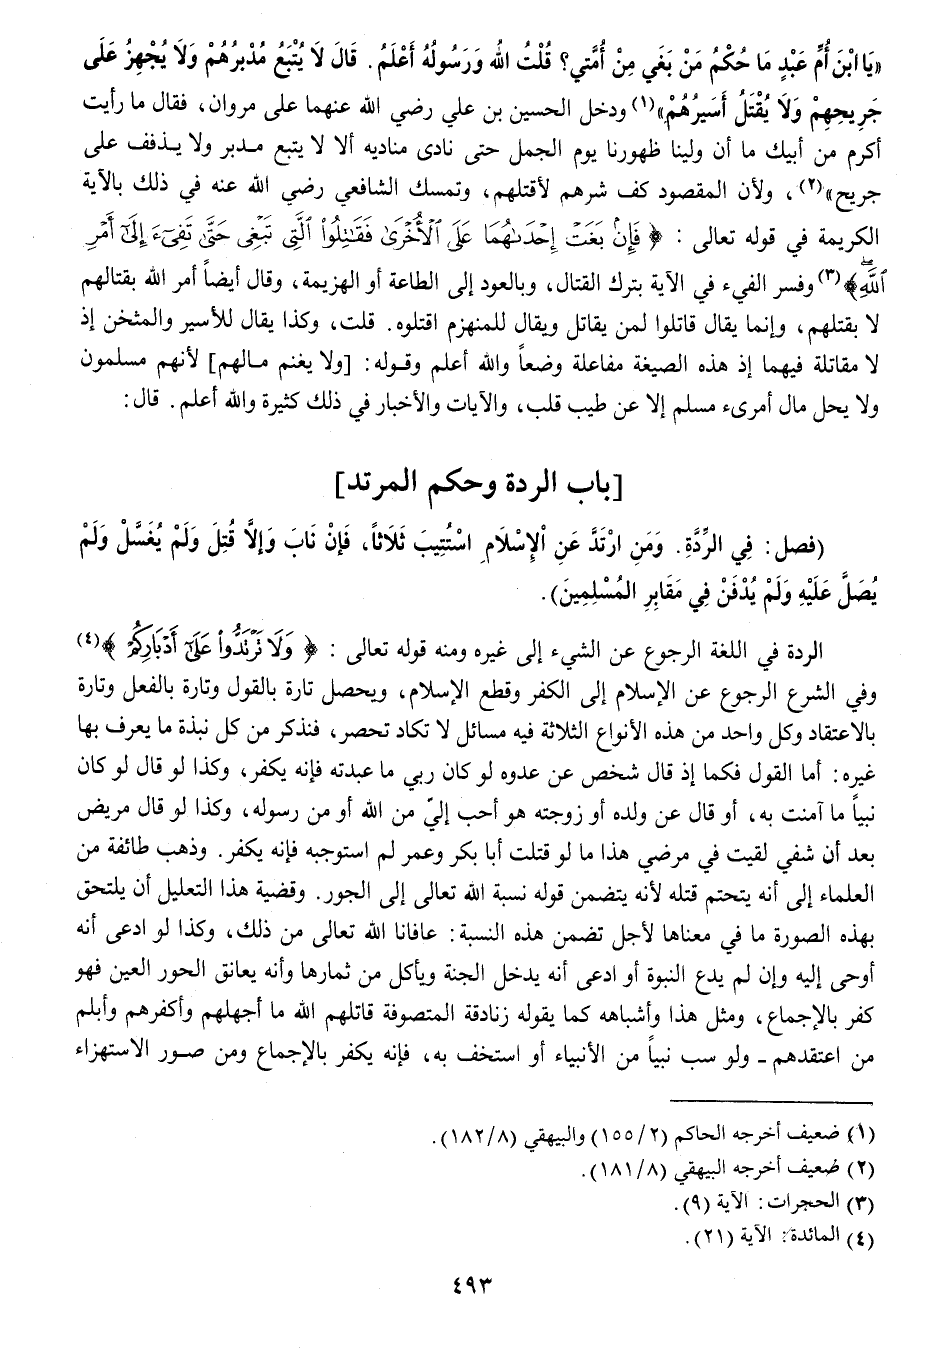 «يَا ابْنَ أُمِّ عَبْدٍ مَا حُكْمُ مَنْ بَغَي مِنْ أُمَّتي؟ قُلْتُ اللهُ وَرَسُولُهُ أَعْلَمُ. قَالَ لَا يُتْبَعُ مُدْبِرُهُمْ وَلَا يُجْهِزُ عَلَى
جَرِيحِهِمْ وَلَا يُقْتَلُ أَسَيرُهُمْ»(١) ودخل الحسين بن علي رضي الله عنهما على مروان، فقال ما رأيت
أكرم من أبيك ما أن ولينا ظهورنا يوم الجمل حتى نادى مناديه ألا لا يتبع مدبر ولا يذفف على
جريح»(٢)، ولأن المقصود كف شرهم لأقتلهم، وتمسك الشافعي رضي الله عنه في ذلك بالآية
الكريمة في قوله تعالى: ﴿فَإِنْ بَغَتْ إِحْدَىٰهُمَا عَلَى ٱلْأُخْرَىٰ فَقَٰتِلُوا۟ ٱلَّتِى تَبْغِى حَتَّىٰ تَفِىٓءَ إِلَىٰٓ أَمْرِ
ٱللَّهِ﴾(٣) وفسر الفيء في الآية بترك القتال، وبالعود إلى الطاعة أو الهزيمة، وقال أيضاً أمر الله بقتالهم
لا بقتلهم، وإنما يقال قاتلوا لمن يقاتل ويقال للمنهزم اقتلوه. قلت، وكذا يقال للأسير والمثخن إذ
لا مقاتلة فيهما إذ هذه الصيغة مفاعلة وضعاً والله أعلم وقوله: [ولا يغنم مالهم] لأنهم مسلمون
ولا يحل مال أمرىء مسلم إلا عن طيب قلب، والآيات والأخبار في ذلك كثيرة والله أعلم. قال:
[باب الردة وحكم المرتد]
(فصل: فِي الرِّدَّةِ. وَمَنِ ارْتَدَّ عَنِ الْإِسْلَامِ اسْتُتِيبَ ثَلَاثاً، فَإِنْ تَابَ وَإِلَّا قُتِلَ وَلَمْ يُغَسَّلْ وَلَمْ
يُصَلَّ عَلَيْهِ وَلَمْ يُدْفَنْ فِي مَقَابِرِ الْمُسْلِمِينَ).
الردة في اللغة الرجوع عن الشيء إلى غيره ومنه قوله تعالى: ﴿وَلَا تَرْتَدُّوا۟ عَلَىٰٓ أَدْبَارِكُمْ﴾(٤)
وفي الشرع الرجوع عن الإسلام إلى الكفر وقطع الإسلام، ويحصل تارة بالقول وتارة بالفعل وتارة
بالاعتقاد وكل واحد من هذه الأنواع الثلاثة فيه مسائل لا تكاد تحصر، فنذكر من كل نبذة ما يعرف بها
غيره: أما القول فكما إذ قال شخص عن عدوه لو كان ربي ما عبدته فإنه يكفر، وكذا لو قال لو كان
نبياً ما آمنت به، أو قال عن ولده أو زوجته هو أحب إليّ من الله أو من رسوله، وكذا لو قال مريض
بعد أن شفي لقيت في مرضي هذا ما لو قتلت أبا بكر وعمر لم استوجبه فإنه يكفر. وذهب طائفة من
العلماء إلى أنه يتحتم قتله لأنه يتضمن قوله نسبة الله تعالى إلى الجور. وقضية هذا التعليل أن يلتحق
بهذه الصورة ما في معناها لأجل تضمن هذه النسبة: عافانا الله تعالى من ذلك، وكذا لو ادعى أنه
أوحى إليه وإن لم يدع النبوة أو ادعى أنه يدخل الجنة ويأكل من ثمارها وأنه يعانق الحور العين فهو
كفر بالإجماع، ومثل هذا وأشباهه كما يقوله زنادقة المتصوفة قاتلهم الله ما أجهلهم وأكفرهم وأبلم
من اعتقدهم ـ ولو سب نبياً من الأنبياء أو استخف به، فإنه يكفر بالإجماع ومن صور الاستهزاء
(١) ضعيف أخرجه الحاكم (١٥٥/٢) والبيهقي (١٨٢/٨).
(٢) ضعيف أخرجه البيهقي (١٨١/٨).
(٣) الحجرات: الآية (٩).
(٤) المائدة: الآية (٢١).
٤٩٣